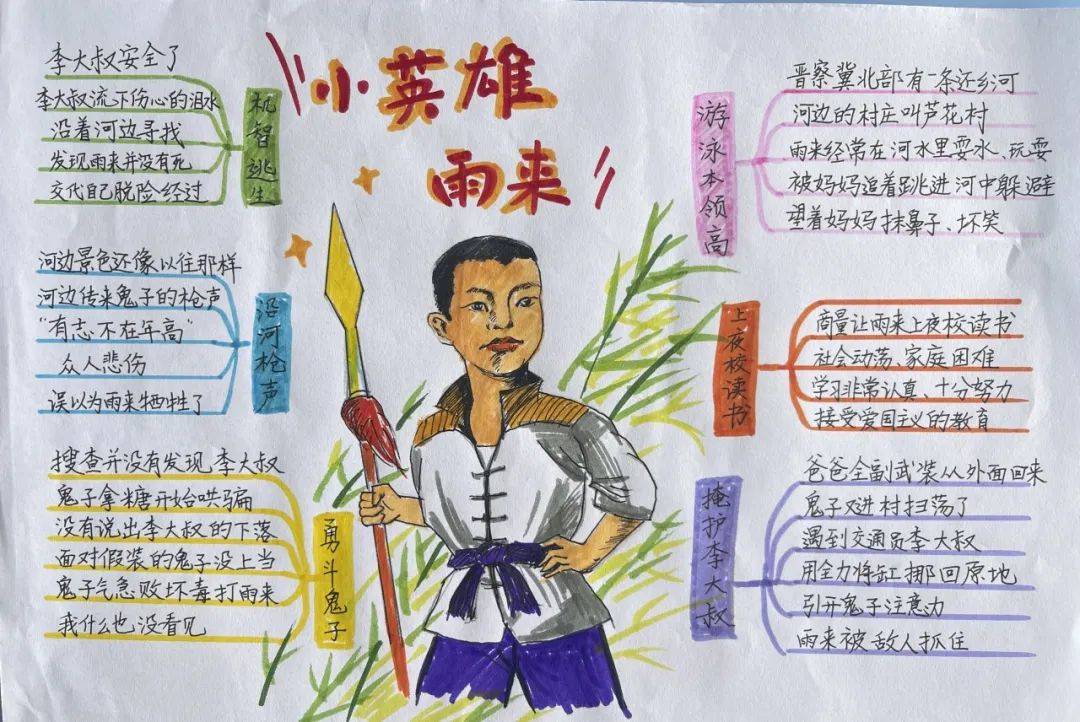 小英雄
雨来
游泳本领高
晋察冀北部有一条还乡河
河边的村庄叫芦花村
雨来经常在河水里耍水、玩耍
被妈妈追着跳进河中躲避
望着妈妈抹鼻子、坏笑
上夜校读书
商量让雨来上夜校读书
社会动荡、家庭困难
学习非常认真、十分努力
接受爱国主义的教育
掩护李大叔
爸爸全副武装从外面回来
鬼子又进村扫荡了
遇到交通员李大叔
用全力将缸挪回原地
引开鬼子注意力
雨来被敌人抓住
勇斗鬼子
搜查并没有发现李大叔
鬼子拿糖开始哄骗
没有说出李大叔的下落
面对假装的鬼子没上当
鬼子气急败坏毒打雨来
我什么也没看见
沿河枪声
河边景色还像以往那样
河边传来鬼子的枪声
“有志不在年高”
众人悲伤
误以为雨来牺牲了
机智逃生
李大叔安全了
李大叔流下伤心的泪水
沿着河边寻找
发现雨来并没有死
交代自己脱险经过